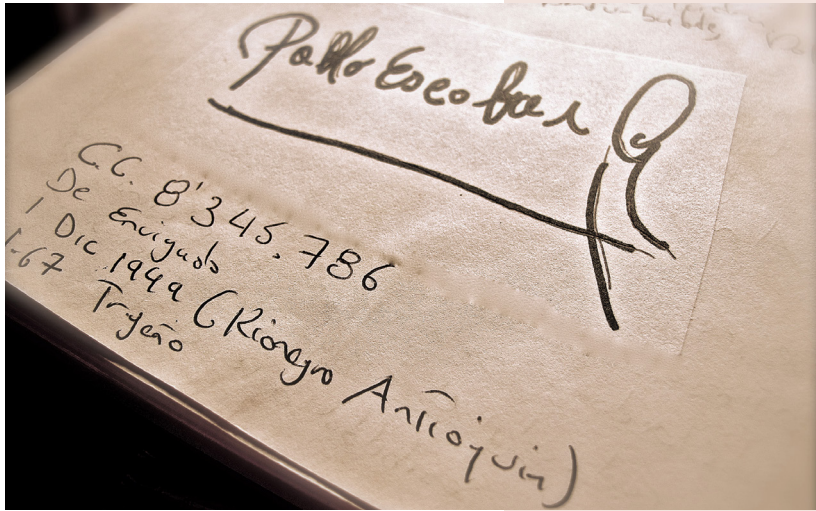 Pablo Escobar G
C.C. 8'345.786
De Envigado
1 Dic 1949 (Rionegro Antioquia)
1-67
Trigeño